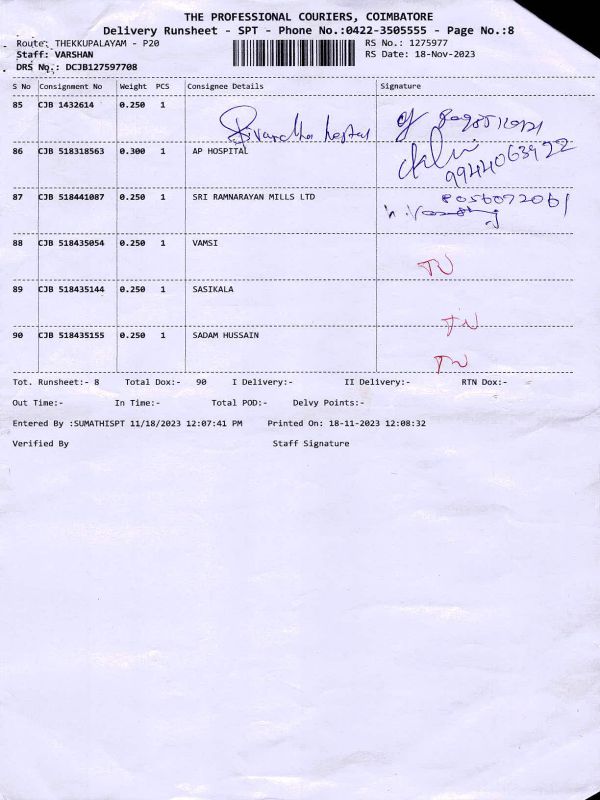 THE PROFESSIONAL COURIERS, COIMBATORE
Delivery Runsheet - SPT - Phone No.:0422-3505555 - Page No.:8
Route: THEKKUPALAYAM - P20 RS No.: 1275977
Staff: VARSHAN RS Date: 18-Nov-2023
DRS No.: DCJB127597708
S No Consignment No Weight PCS Consignee Details Signature
85 CJB 1432614 0.250 1
86 CJB 518318563 0.300 1 AP HOSPITAL 9944063922
87 CJB 518441087 0.250 1 SRI RAMNARAYAN MILLS LTD 8056072061
88 CJB 518435054 0.250 1 VAMSI
89 CJB 518435144 0.250 1 SASIKALA
90 CJB 518435155 0.250 1 SADAM HUSSAIN
Tot. Runsheet:- 8 Total Dox:- 90 I Delivery:- II Delivery:- RTN Dox:-
Out Time:- In Time:- Total POD:- Delvy Points:-
Entered By :SUMATHISPT 11/18/2023 12:07:41 PM Printed On: 18-11-2023 12:08:32
Verified By Staff Signature